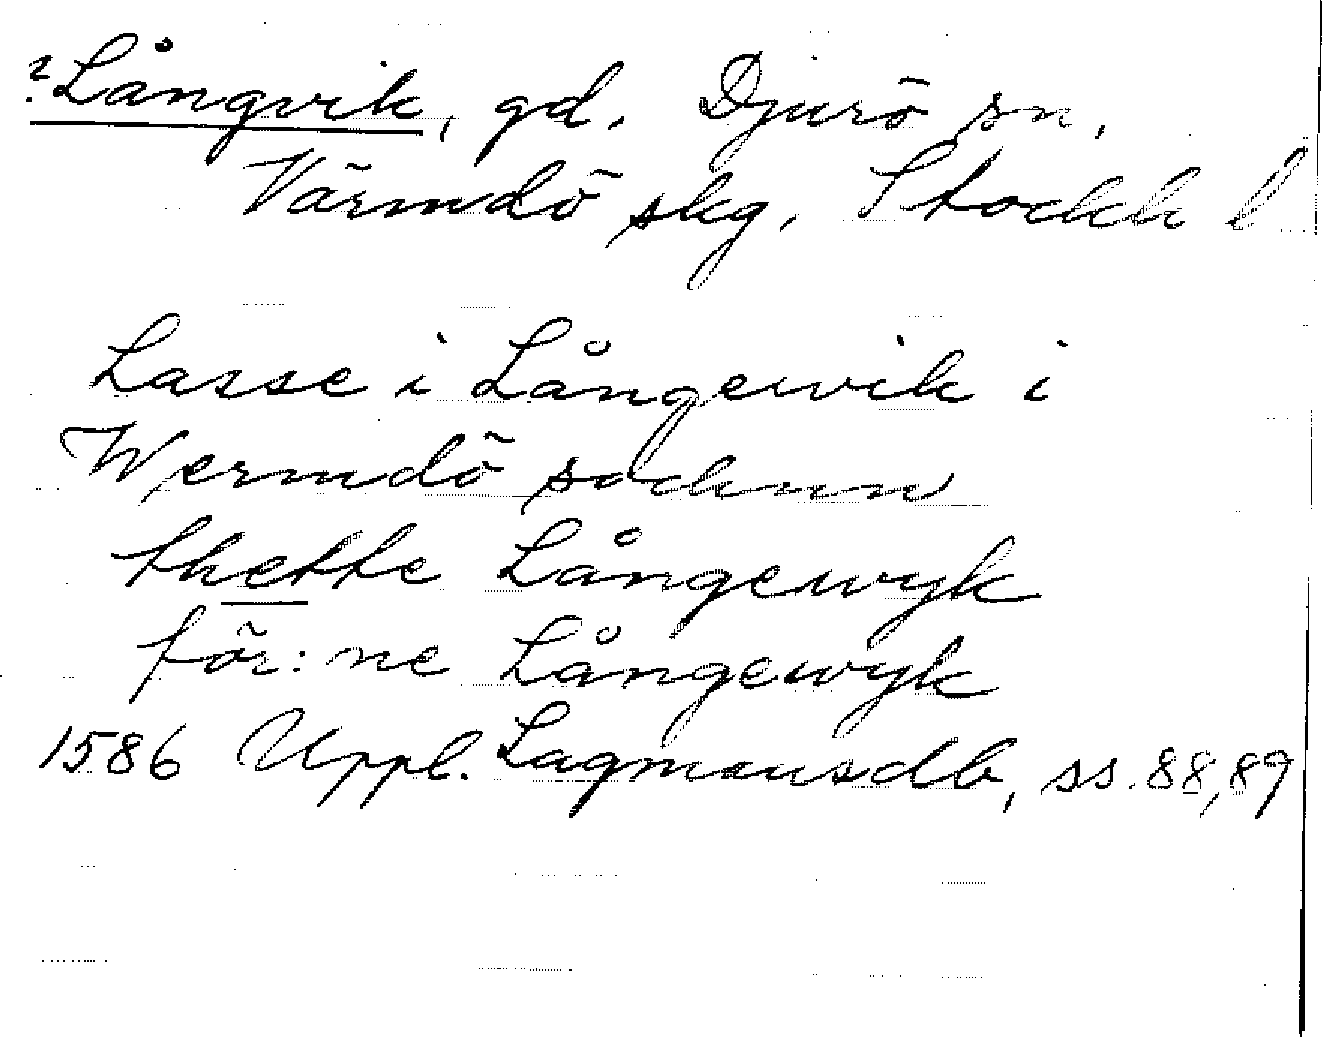 ? Långvik, gd, Djurö sn,
Värmdö skg, Stockh l
Lasse i Långewik i
Wermdö sochnn
thette Långewyk
för:ne Långewyk
1586 Uppl. Lagmansdb, ss. 88, 89